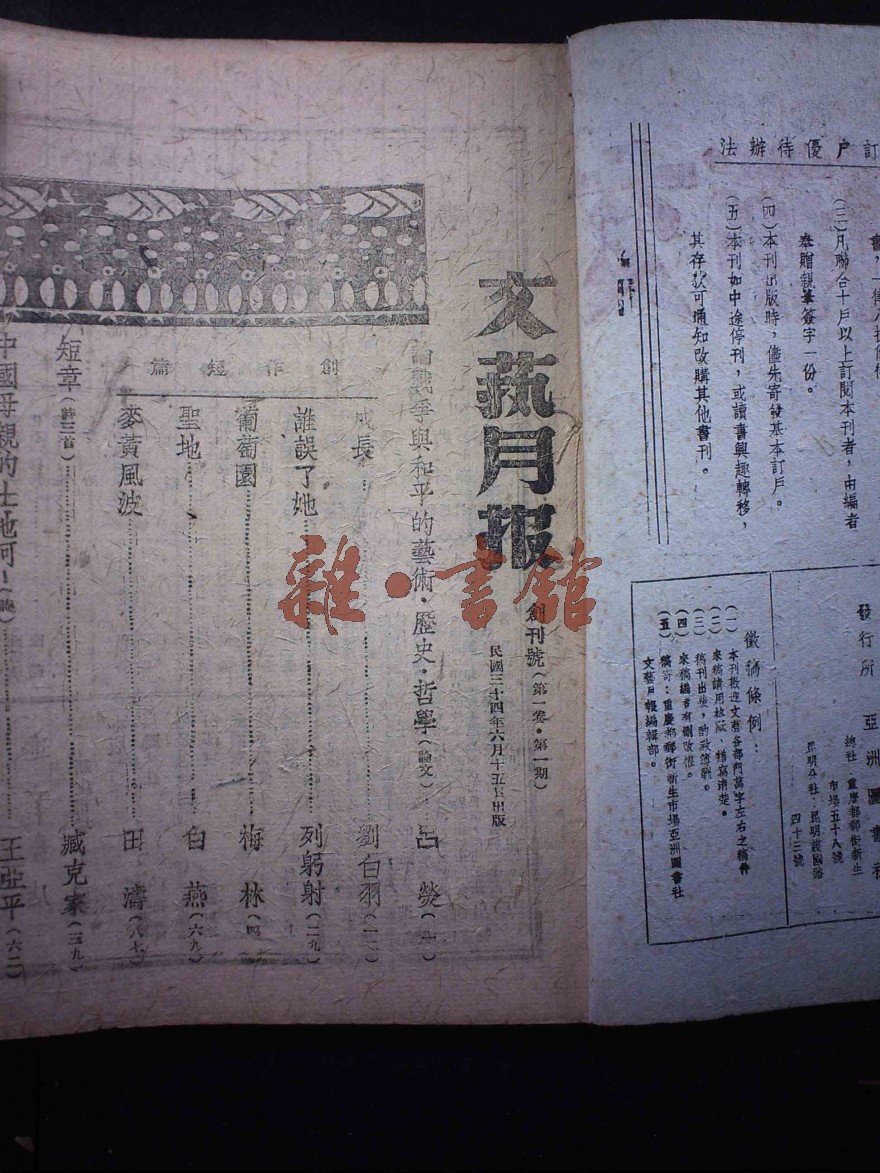 訂戶優待辦法
(三)凡聯合十戶以上訂閱本刊者，由編者
奉贈親筆簽字一份。
(四)本刊出版時，儘先寄發基本訂戶。
(五)本刊如中途停刊，或讀書興趣轉移，
其存款可通知改購其他書刊。
發行所 亞洲圖書社
總社：重慶都郵街新生
市場五十八號
昆明分社：昆明護國路
四十三號
徵稿條例：
(一)本刊歡迎文藝各部門萬字左右之稿件
(二)來稿請用
繕寫清楚。
(三)稿刊出後，酌致薄酬。
(四)來稿編者有刪改權。
(五)稿寄：重慶都郵街新生市場亞洲圖書社
文藝月報編輯部。
文藝月报
創刊號(第一卷·第一期)
民國三十四年六月十五日出版
論戰爭與和平的藝術·歷史·哲學(論文)……呂熒(一)
創作短篇
成長……劉白羽(一一)
誰誤了她……列躬射(二九)
葡萄園……梅林(四
聖地……白燕(六九)
麥黃風波……田濤(八七)
短章(詩三首)……臧克家(三九)
中國母親的土地呵！(詩)……王亞平(六二)
雜·書館